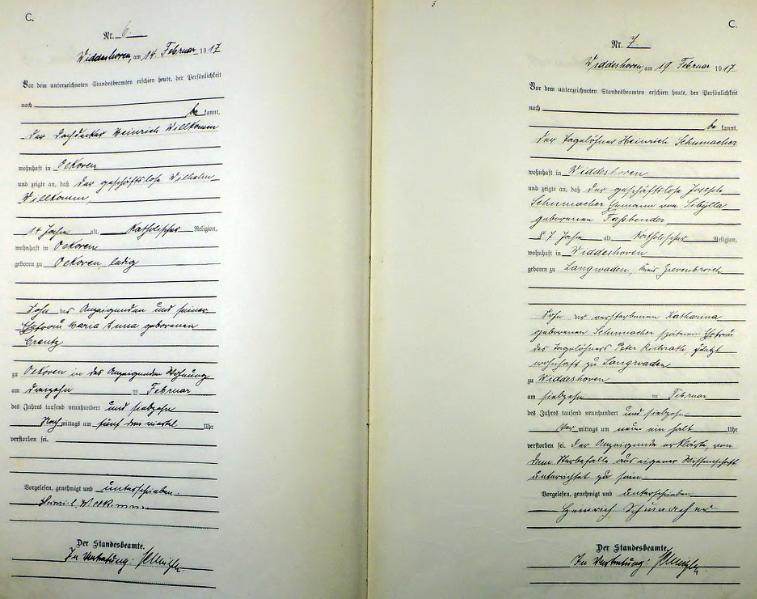 C.
Nr. 6.
Widdeshoven, am 14. Februar 1917
Vor dem unterzeichneten Standesbeamten erschien heute, der Persönlichkeit
nach
be kannt,
der Dachdecker Heinrich Willkomm
wohnhaft in Oekoven
und zeigte an, daß der geschäftslose Wilhelm
Willkomm,
14 Jahre alt, katholischer Religion,
wohnhaft in Oekoven
geboren zu Oekoven, ledig
Sohn des Anzeigenden und seiner
Ehefrau Maria Anna geborenen
zu Oekoven in des Anzeigenden Wohnung
am dreizehn ten Februar
des Jahres tausend neunhundert und siebzehn
Nach mittags um fünf drei viertel Uhr
verstorben sei.
Vorgelesen, genehmigt und unterschrieben.
Der Standesbeamte.
In Vertretung:
C.
Nr. 7.
Widdeshoven, am 19. Februar 1917
Vor dem unterzeichneten Standesbeamten erschien heute, der Persönlichkeit
nach
be kannt,
der Tagelöhner Heinrich Schumacher
wohnhaft in Widdeshoven
und zeigte an, daß der geschäftslose Joseph
Schumacher Ehemann von Sibylla
geborenen Faßbender
57 Jahre alt, katholischer Religion,
wohnhaft in Widdeshoven
geboren zu Langwaden, Kreis Grevenbroich
Sohn der verstorbenen Katharina
geborenen Schumacher späteren Ehefrau
des Tagelöhners Peter
wohnhaft zu Langwaden
zu Widdeshoven
am siebzehn ten Februar
des Jahres tausend neunhundert und siebzehn
Vor mittags um neun ein halb Uhr
verstorben sei. Der Anzeigende erklärte, von
dem Sterbefalle aus eigener Wissenschaft
unterrichtet zu sein.
Vorgelesen, genehmigt und unterschrieben
Heinrich Schumacher
Der Standesbeamte.
In Vertretung: